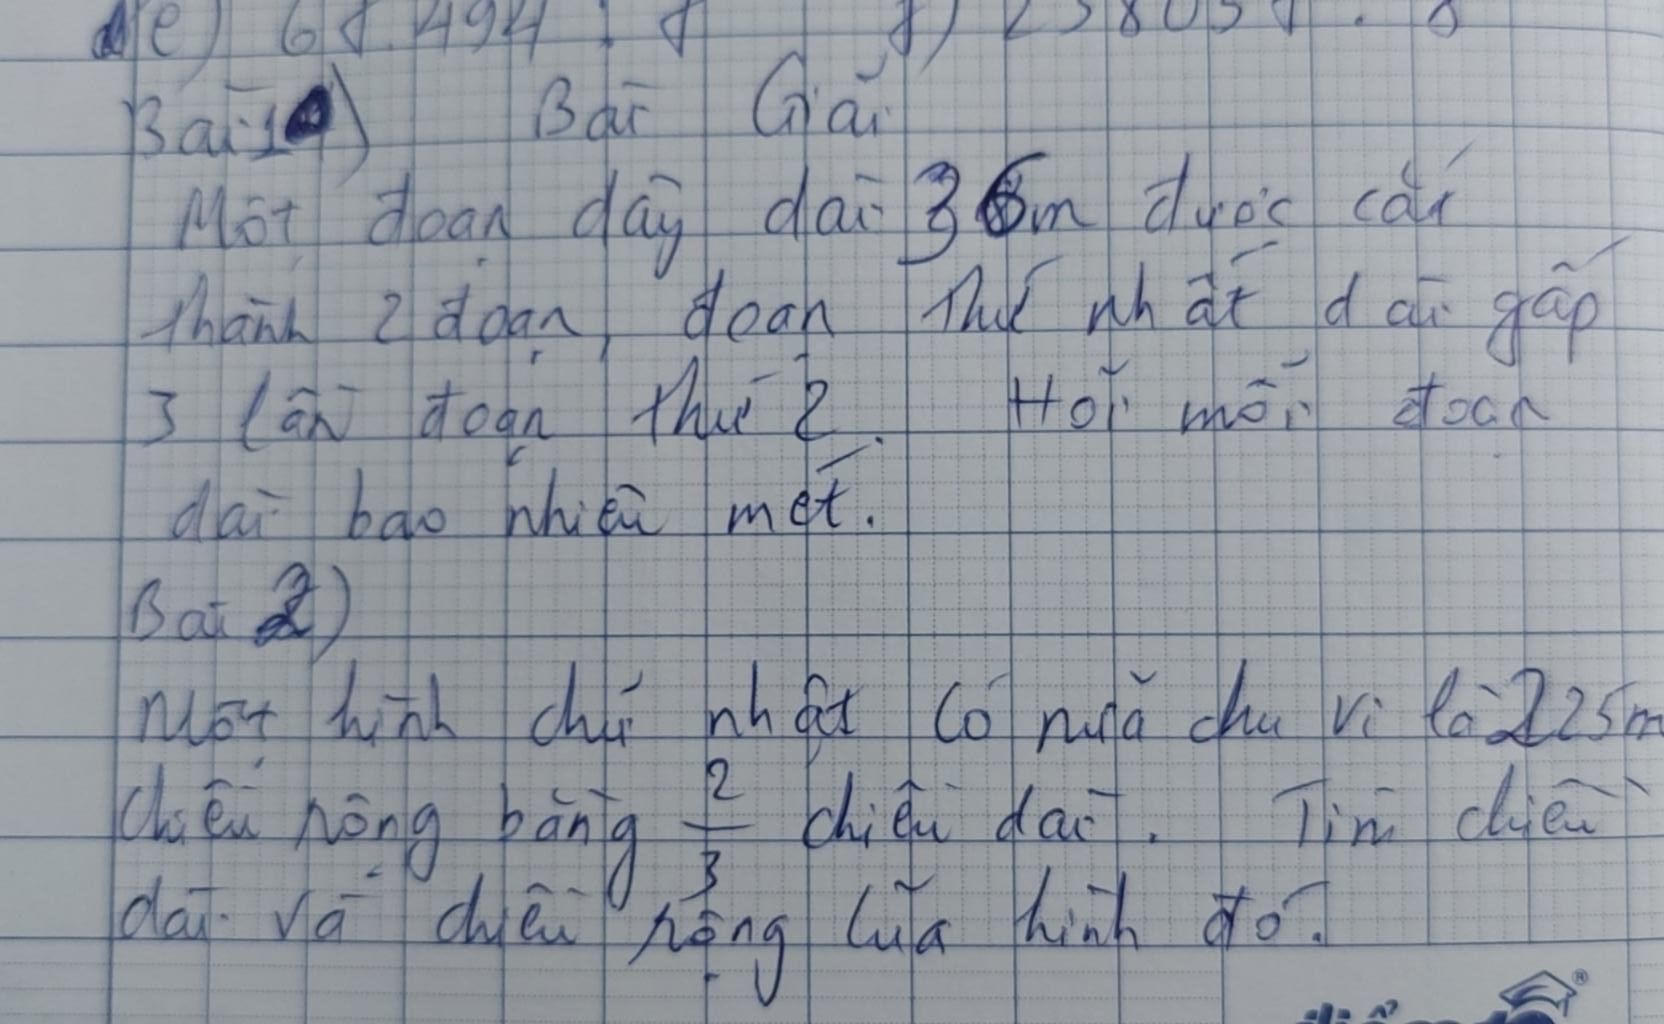 e) 67.494 : 7 f) 238057 : 8
Bài 1) Bài Giải
Một đoạn dây dài 36m được cắt
thành 2 đoạn, đoạn thứ nhất dài gấp
3 lần đoạn thứ 2. Hỏi mỗi đoạn
dài bao nhiêu mét.
Bài 2)
Một hình chữ nhật có nửa chu vi là 225m
chiều rộng bằng 2/3 chiều dài. Tìm chiều
dài và chiều rộng của hình đó.